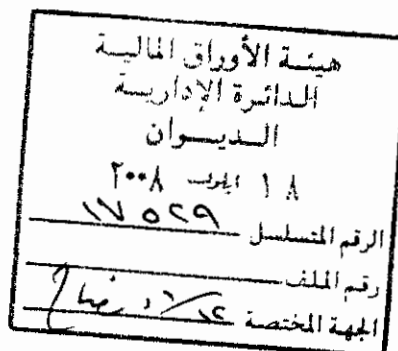 هيئة الأوراق المالية
الدائرة الإدارية
الديوان
١٨ ايلول ٢٠٠٨
الرقم المتسلسل ١٧٥٢٩
رقم الملف
الجهة المختصة